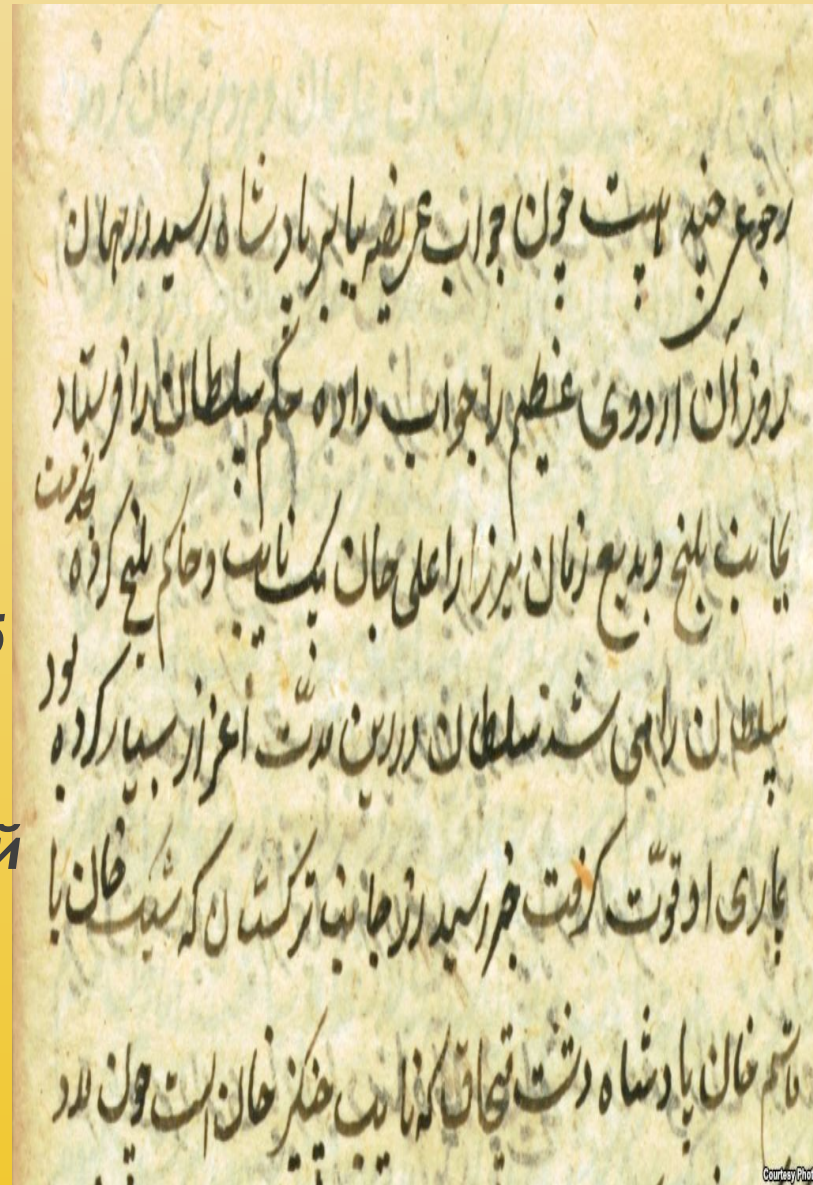 رجوعی چند هست چون جواب عریضه بابر پادشاه رسید در همان
روز آن اردوی عظیم را جواب داده حکم سلطان را فرستاد
بجانب بلخ و بدیع زمان میرزا را علی جان بیک نایب و حاکم بلخ کرده بخدمت
سلطان راهی شد سلطان درین مدّت اعزاز بسیار کرده بود
بیماری او قوّت گرفت خبر رسید از جانب ترکستان که شیبک خان با
قاسم خان پادشاه دشت قبچاق که نایب چنگیز خان است چون مدد
й
Courtesy Phot